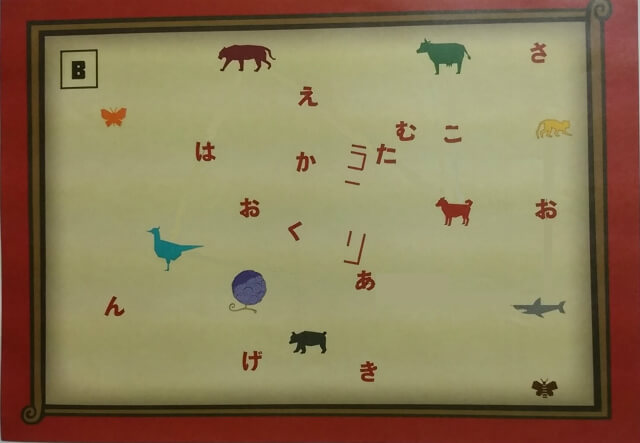 B
さ
え
む
こ
は
か
た
お
お
く
あ
ん
げ
き